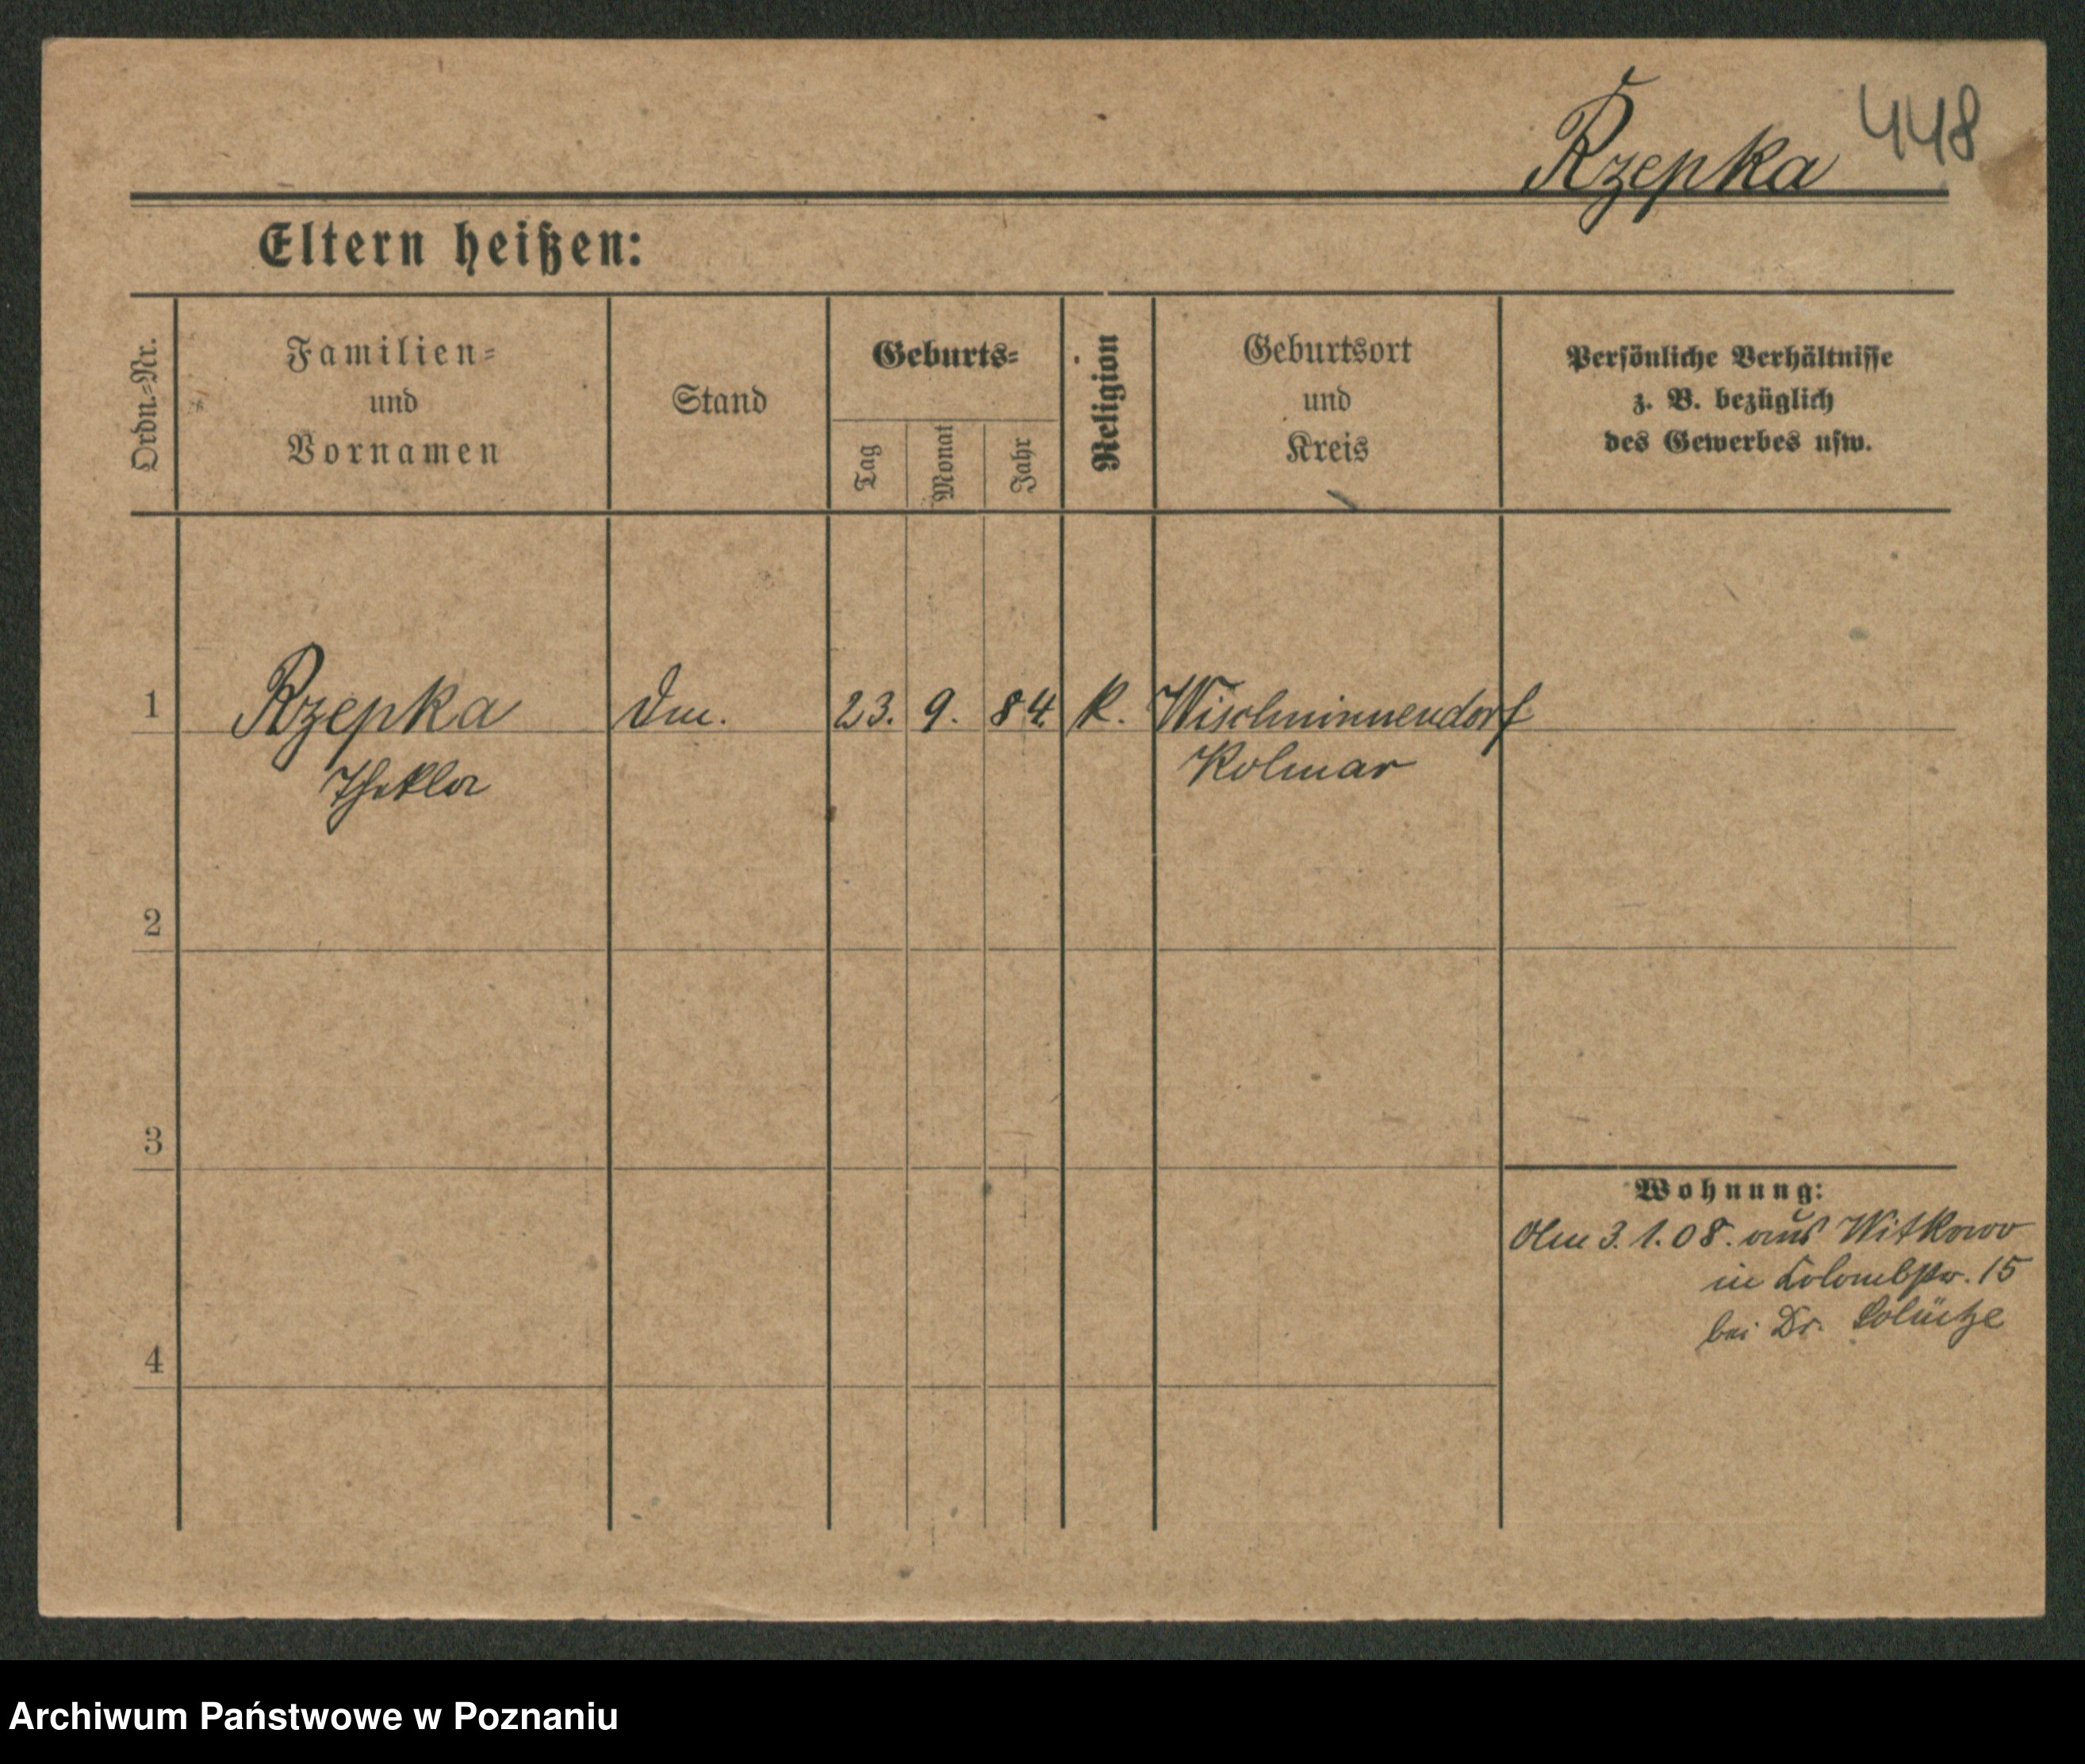 Rzepka 448
Eltern heißen:
Ordn.=Nr.
Familien=
und
Vornamen
Stand
Geburts=
Tag
Monat
Jahr
Religion
Geburtsort
und
Kreis
Persönliche Verhältnisse
z. B. bezüglich
des Gewerbes usw.
1 Rzepka 23. 9. 84. k.
Thekla Kolmar
2
3
Wohnung:
3.1.08. aus Witkowo
in 15
bei Dr.
4
Archiwum Państwowe w Poznaniu